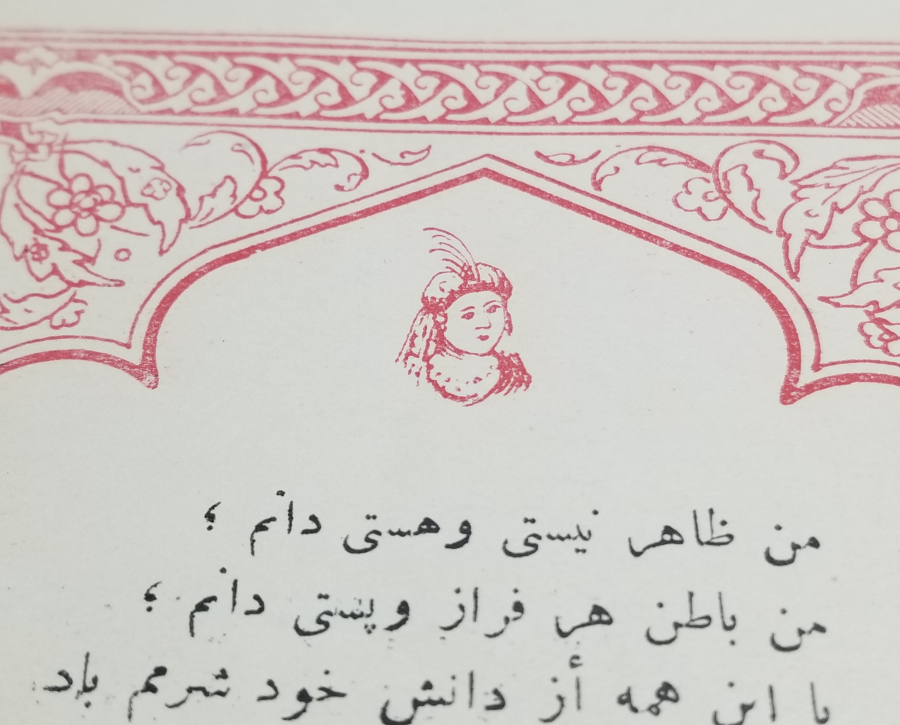 من ظاهر نیستی وهستی دانم ؛
من باطن هر فراز وپستی دانم ؛
با این همه أز دانش خود شرمم باد